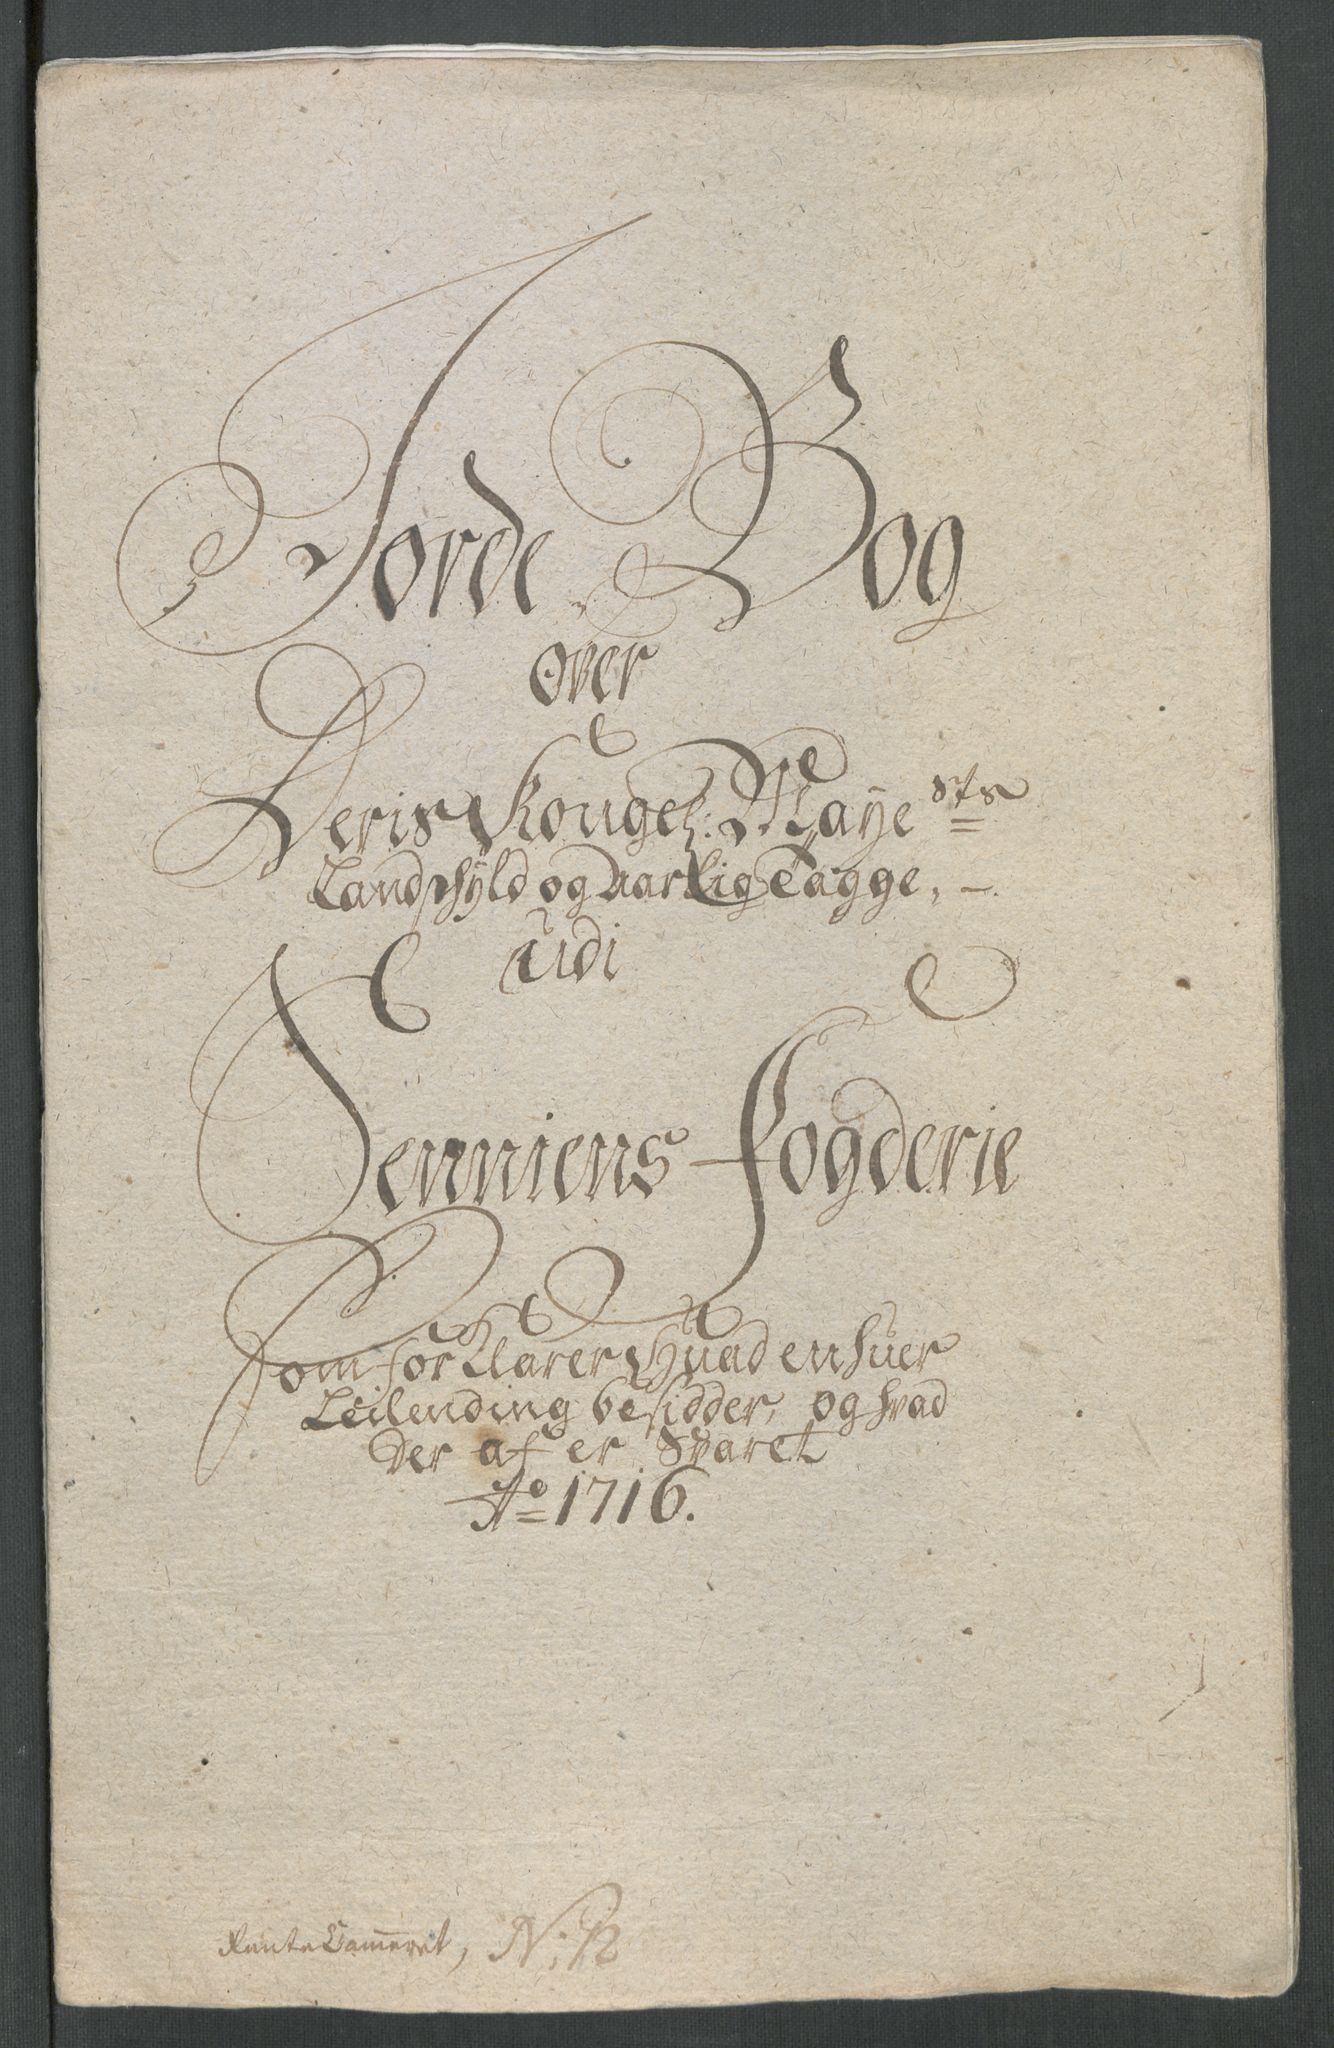 Jorde Bog
over
Deris Kongel: Mayesᵗˢ
Landschyld og Aarlig Tagge,
udi
Senniens Fogderie
som forklarer Huad en huer
Leilending besidder, og hvad
der af er Svaret
Aᵒ 1716.
RenteCammeret, N: